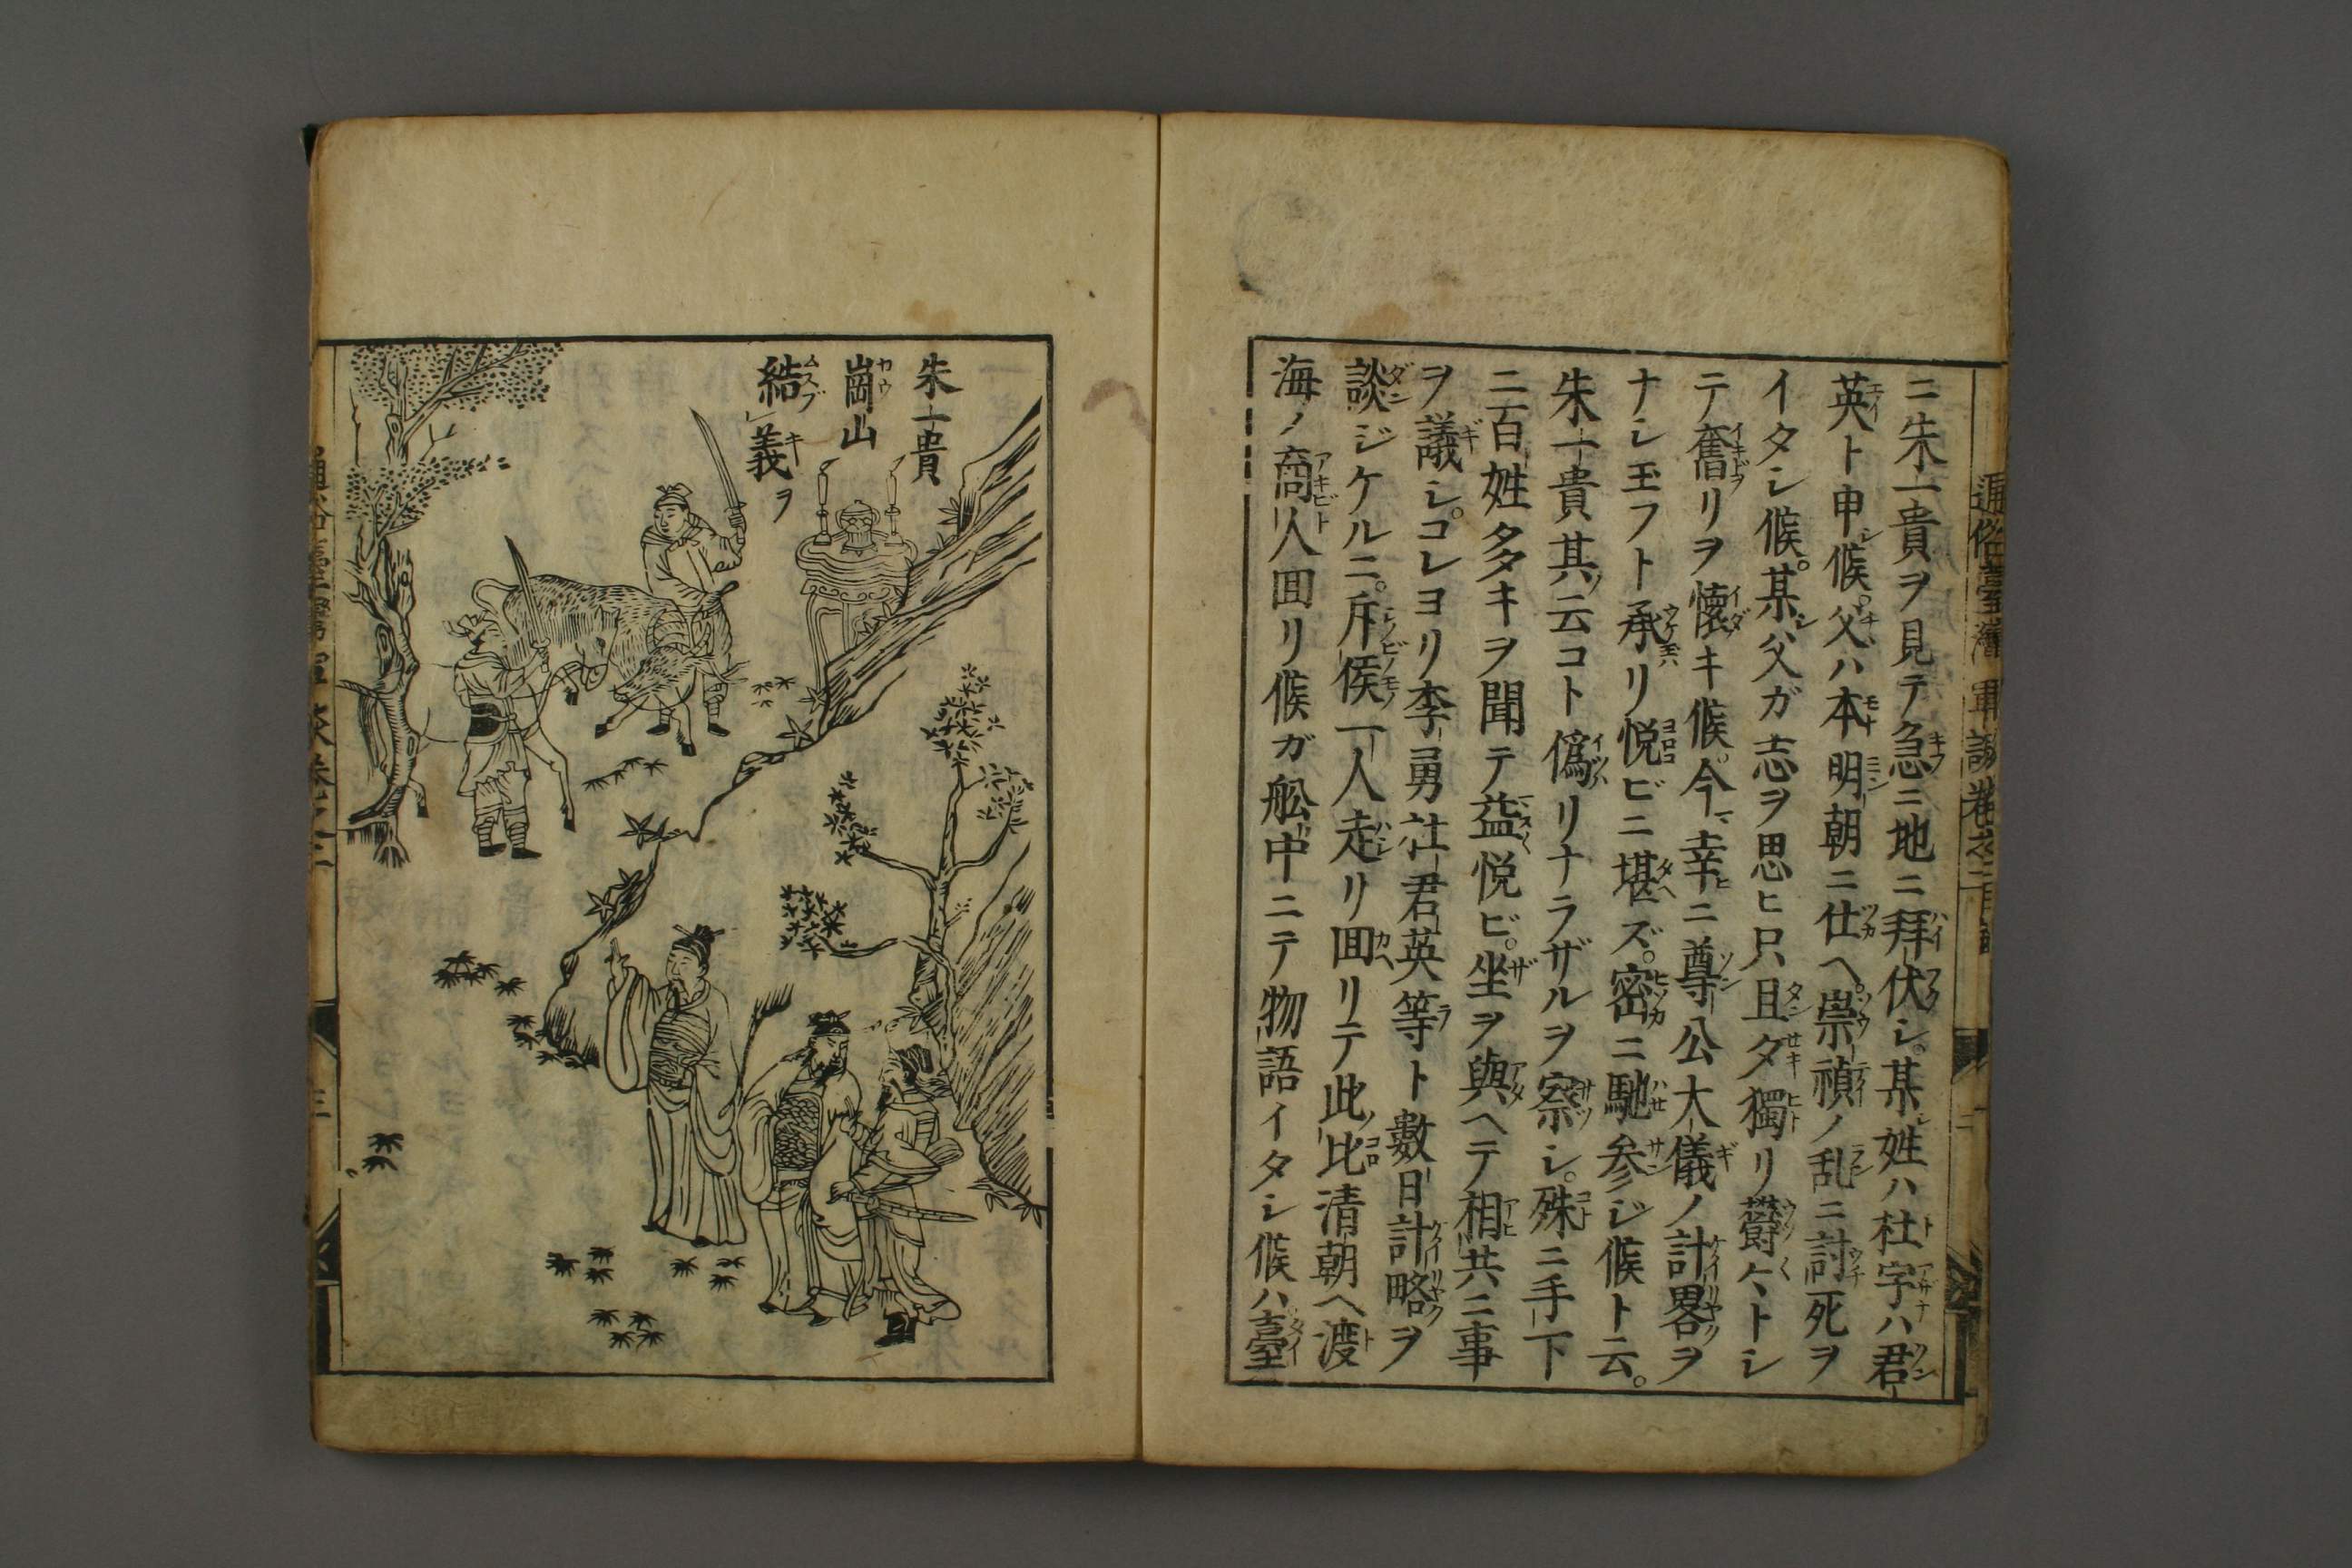 通俗臺灣軍談卷之二
ニ朱一貴ヲ見テ急ニ地ニ拜伏シ。某姓ハ杜字ハ君
英ト申候。父ハ本明朝ニ仕ヘ。崇禎ノ乱ニ討死ヲ
イタシ候。某父ガ志ヲ思ヒ只且夕獨リ欝々トシ
テ奮リヲ懐キ候。今幸ニ尊公大儀ノ計畧ヲ
ナシ玉フト承リ悦ビニ堪ズ。密ニ馳参ジ候ト云。
朱一貴其云コト僞リナラザルヲ察シ。殊ニ手下
ニ百姓多キヲ聞テ益悦ビ。坐ヲ與ヘテ相共ニ事
ヲ議シ。コレヨリ李勇杜君英等ト數日計略ヲ
談ジケルニ。斥候一人走リ囬リテ此比清朝ヘ渡
海ノ商人囬リ候ガ舩中ニテ物語イタシ候ハ臺
朱一貴
崗山
結義ヲ
三